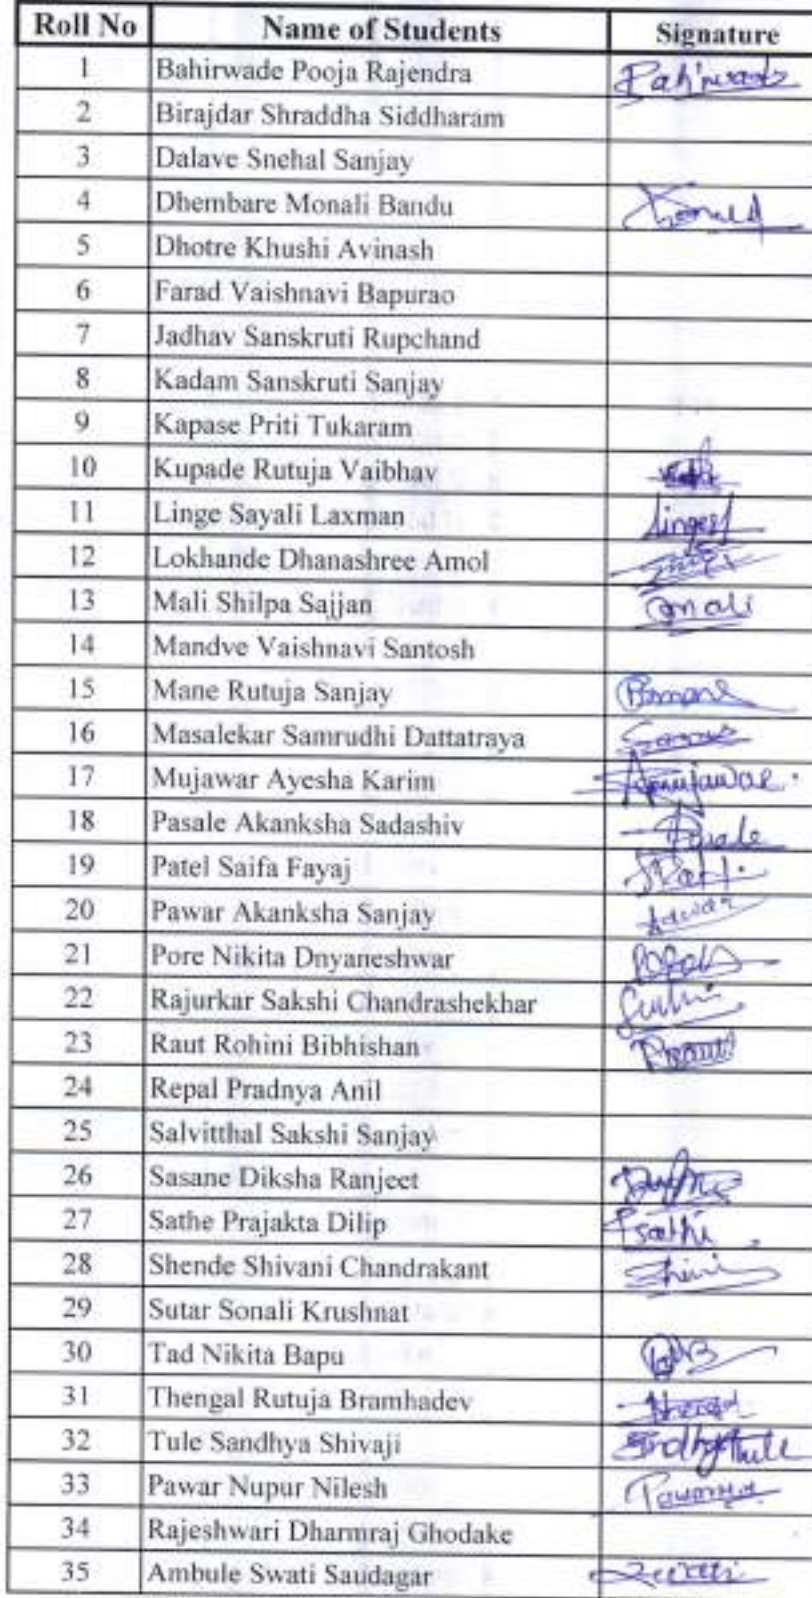 Roll No Name of Students Signature
1 Bahirwade Pooja Rajendra Bahirwade
2 Birajdar Shraddha Siddharam
3 Dalave Snehal Sanjay
4 Dhembare Monali Bandu
5 Dhotre Khushi Avinash
6 Farad Vaishnavi Bapurao
7 Jadhav Sanskruti Rupchand
8 Kadam Sanskruti Sanjay
9 Kapase Priti Tukaram
10 Kupade Rutuja Vaibhav
11 Linge Sayali Laxman
12 Lokhande Dhanashree Amol
13 Mali Shilpa Sajjan Mali
14 Mandve Vaishnavi Santosh
15 Mane Rutuja Sanjay
16 Masalekar Samrudhi Dattatraya
17 Mujawar Ayesha Karim Amujawar
18 Pasale Akanksha Sadashiv Pasale
19 Patel Saifa Fayaj
20 Pawar Akanksha Sanjay
21 Pore Nikita Dnyaneshwar
22 Rajurkar Sakshi Chandrashekhar
23 Raut Rohini Bibhishan
24 Repal Pradnya Anil
25 Salvitthal Sakshi Sanjay
26 Sasane Diksha Ranjeet
27 Sathe Prajakta Dilip Psathe
28 Shende Shivani Chandrakant
29 Sutar Sonali Krushnat
30 Tad Nikita Bapu
31 Thengal Rutuja Bramhadev
32 Tule Sandhya Shivaji
33 Pawar Nupur Nilesh
34 Rajeshwari Dharmraj Ghodake
35 Ambule Swati Saudagar